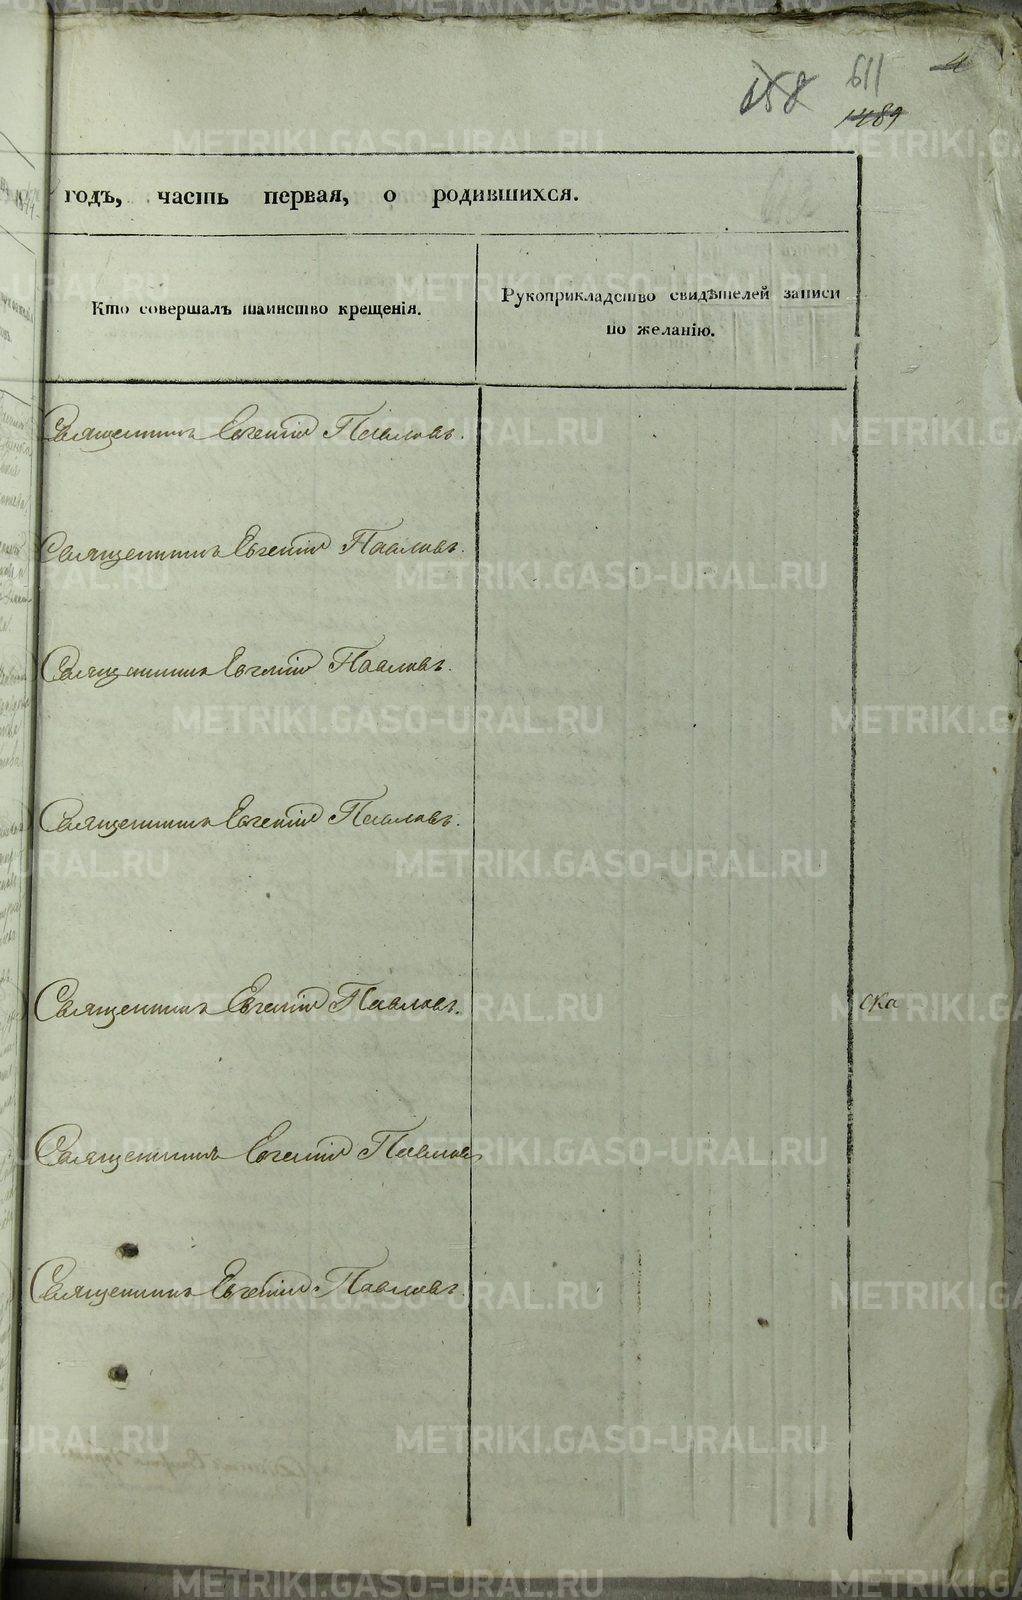 4
658 611
1489
годъ, часть первая, о родившихся.
Кто совершалъ таинство крещенія.
Рукоприкладство свидѣтелей записи
по желанію.
Священникъ Евгеній Павловъ.
Священникъ Евгеній Павловъ.
Священникъ Евгеній Павловъ.
Священникъ Евгеній Павловъ.
Священникъ Евгеній Павловъ.
ска
Священникъ Евгеній Павловъ
Священникъ Евгеній Павловъ.
METRIKI.GASO-URAL.RU